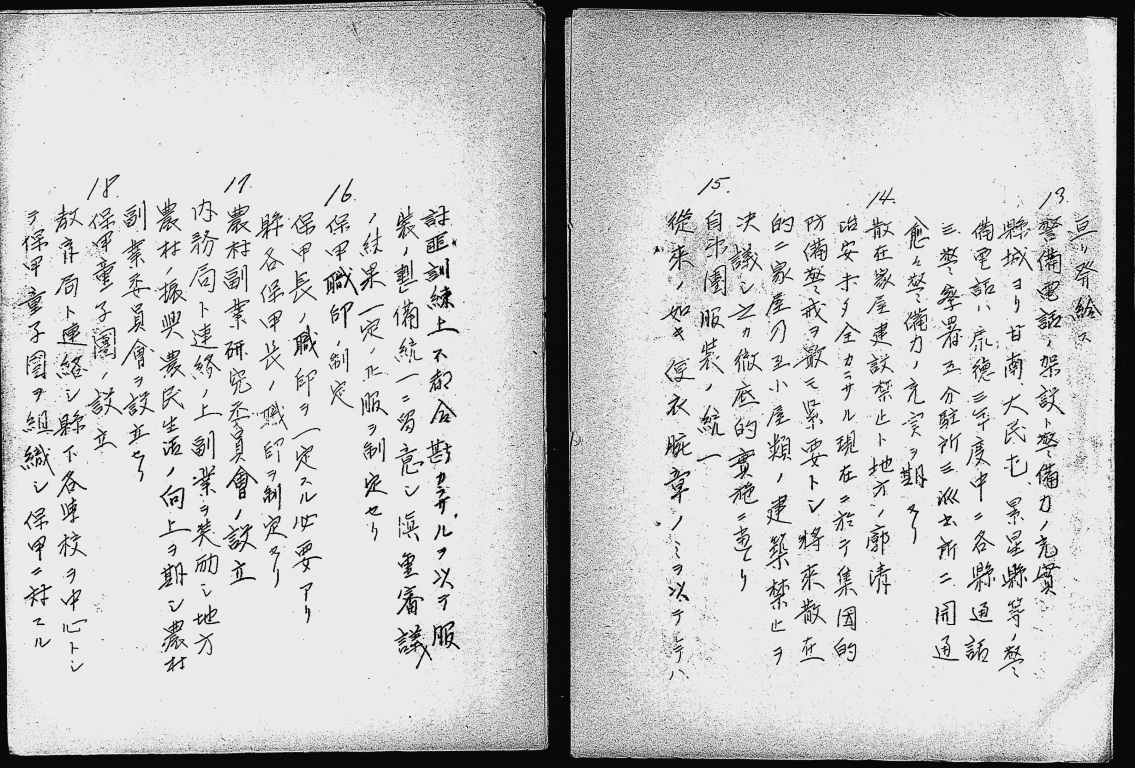 亘リ発給ス
13. 警備電話ノ架設ト警備力ノ充實
縣城ヨリ甘南、大民屯、景星縣等ノ警
備電話ハ康徳三年度中ニ各縣通話
三警察署五分駐所三派出所ニ開通
愈々警備力ノ充実ヲ期セリ
14. 散在家屋建設禁止ト地方ノ廓清
治安未タ全カラサル現在ニ於テ集団的
防備警戒ヲ最モ緊要トシ将来散在
的ニ家屋乃至小屋類ノ建築禁止ヲ
決議シ之カ徹底的實施ニ
15. 自衛團服装ノ統一
從来ノ如キ便衣腕章ノミヲ以テシテハ
討匪訓練上不都合尠カラサルヲ以テ服
装ノ整備統一ニ留意シ慎重審議
ノ結果一定ノ服ヲ制定セリ
16. 保甲職印ノ制定
保甲長ノ職印ヲ一定スル必要アリ
縣各保甲長ノ職印ヲ制定セリ
17. 農村副業研究委員會ノ設立
内務局ト連絡ノ上副業ヲ奨励シ地方
農村ノ振興農民生活ノ向上ヲ期シ農村
副業委員會ヲ設立セリ
18. 保甲童子團ノ設立
教育局ト連絡シ縣下各學校ヲ中心トシ
テ保甲童子團ヲ組織シ保甲ニ対スル